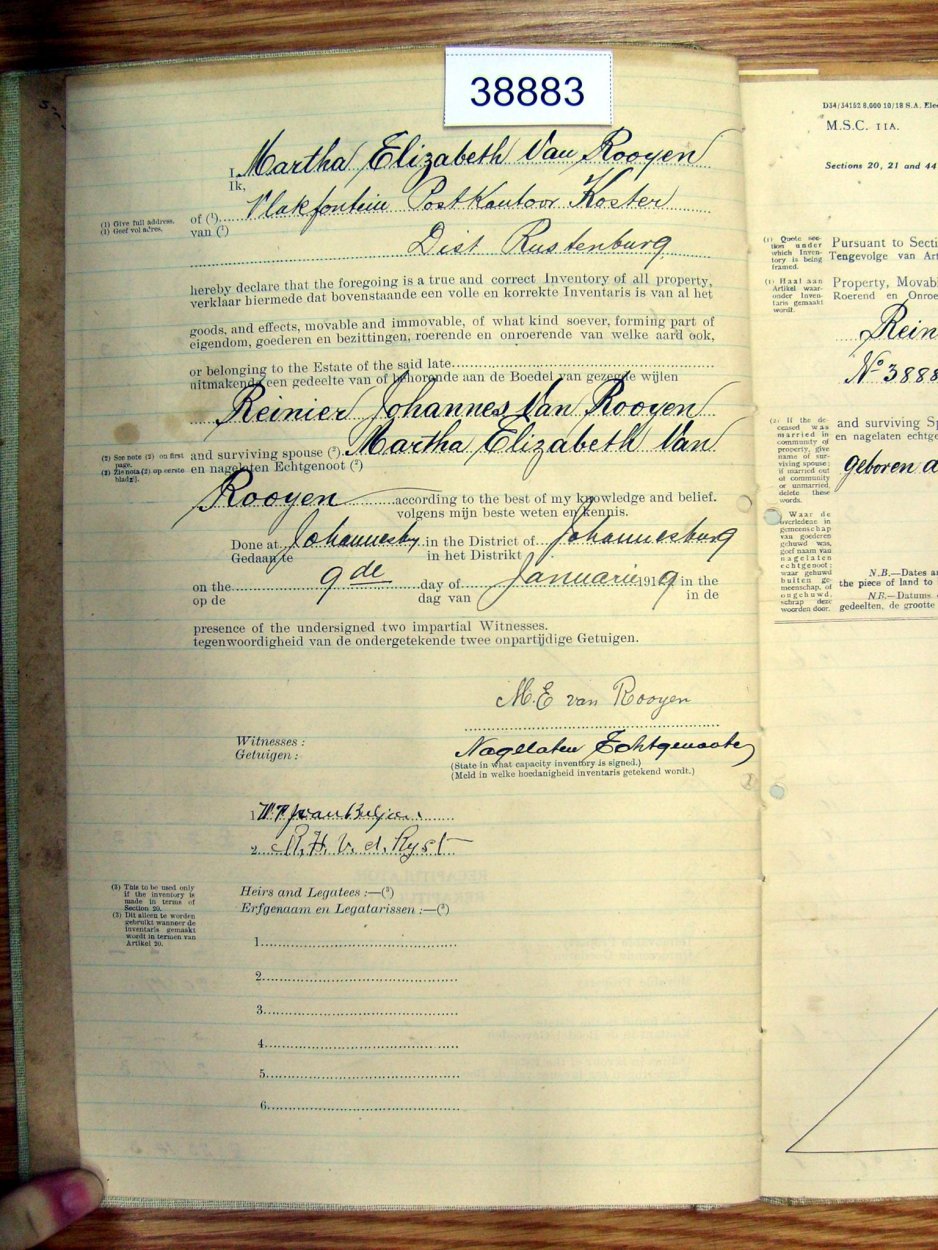 38883
I, Martha Elizabeth Van Rooyen
Ik,
(1) Give full address.
(1) Geef vol adres.
of (1) Vlakfontein Postkantoor Koster
van (1)
Dist Rustenburg
hereby declare that the foregoing is a true and correct Inventory of all property,
verklaar hiermede dat bovenstaande een volle en korrekte Inventaris is van al het
goods, and effects, movable and immovable, of what kind soever, forming part of
eigendom, goederen en bezittingen, roerende en onroerende van welke aard ook,
or belonging to the Estate of the said late
uitmakende een gedeelte van of behorende aan de Boedel van gezegde wijlen
Reinier Johannes Van Rooyen
(2) See note (2) on first
page.
(2) Zie nota (2) op eerste
bladz.
and surviving spouse (2) Martha Elizabeth Van
en nagelaten Echtgenoot (2)
Rooyen according to the best of my knowledge and belief.
volgens mijn beste weten en kennis.
Done at Johannesbg in the District of Johannesburg
Gedaan te in het Distrikt
on the 9de day of Januarie 1919 in the
op de dag van in de
presence of the undersigned two impartial Witnesses.
tegenwoordigheid van de ondergetekende twee onpartijdige Getuigen.
M. E van Rooyen
Witnesses :
Getuigen :
Nagelaten Echtgenoote
(State in what capacity inventory is signed.)
(Meld in welke hoedanigheid inventaris getekend wordt.)
1
2 R. H. V. d. Ryst
(3) This to be used only
if the inventory is
made in terms of
Section 20.
(3) Dit alleen te worden
gebruikt wanneer de
inventaris gemaakt
wordt in termen van
Artikel 20.
Heirs and Legatees :—(3)
Erfgenaam en Legatarissen :—(3)
1
2
3
4
5
6
D34/34152 8,000 10/18 S.A. Elec
M.S.C. IIA.
Sections 20, 21 and 44
(1) Quote sec-
tion under
which Inven-
tory is being
framed.
(1) Haal aan
Artikel waar-
onder Inven-
taris gemaakt
wordt.
Pursuant to Secti
Tengevolge van Art
Property, Movab
Roerend en Onroe
Rein
No 3888
(2) If the de-
ceased was
married in
community of
property, give
name of sur-
viving spouse;
if married out
of community
or unmarried,
delete these
words.
and surviving Sp
en nagelaten echtge
geboren
Waar de
overledene in
gemeenschap
van goederen
gehuwd was,
geef naam van
nagelaten
echtgenoot;
waar gehuwd
buiten ge-
meenschap, of
ongehuwd,
schrap deze
woorden door.
N.B.—Dates a
the piece of land to
NB.—Datums
gedeelten, de grootte